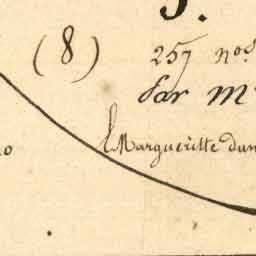 5.
(8) 257 nos
Par m
Margueritte dun